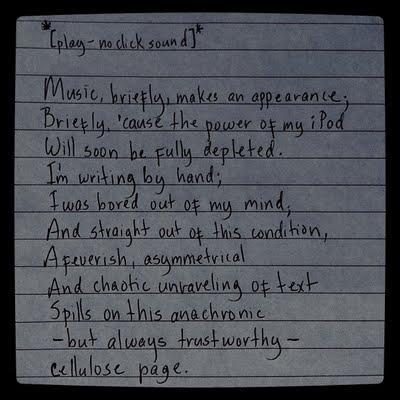 *[play-no click sound]*
Music, briefly, makes an appearance;
Briefly, 'cause the power of my iPod
Will soon be fully depleted.
I'm writing by hand;
I was bored out of my mind;
And straight out of this condition,
A feverish, asymmetrical
And chaotic unraveling of text
Spills on this anachronic
-but always trustworthy-
cellulose page.